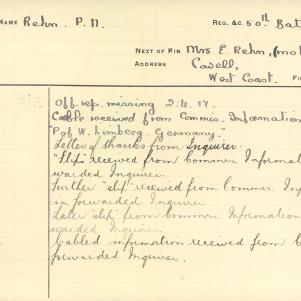 NAME Rehn. P. N. REG. &C. 50th Bat
NEXT OF KIN Mrs E. Rehn, (mot
ADDRESS Cowell,
West Coast. Fi
Off. rep. missing 2.4.17.
Cable received from Commis. Information
"P of W. Limberg. Germany."
Letter of thanks from Inquirer.
"Slip" received from Commrs. Informat
warded Inquirer.
Further "slip" received from Commrs. Inf
ion forwarded Inquirer.
Later "slip" from Commrs. Information
warded Inquirer.
Cabled information received from C
forwarded Inquirer.